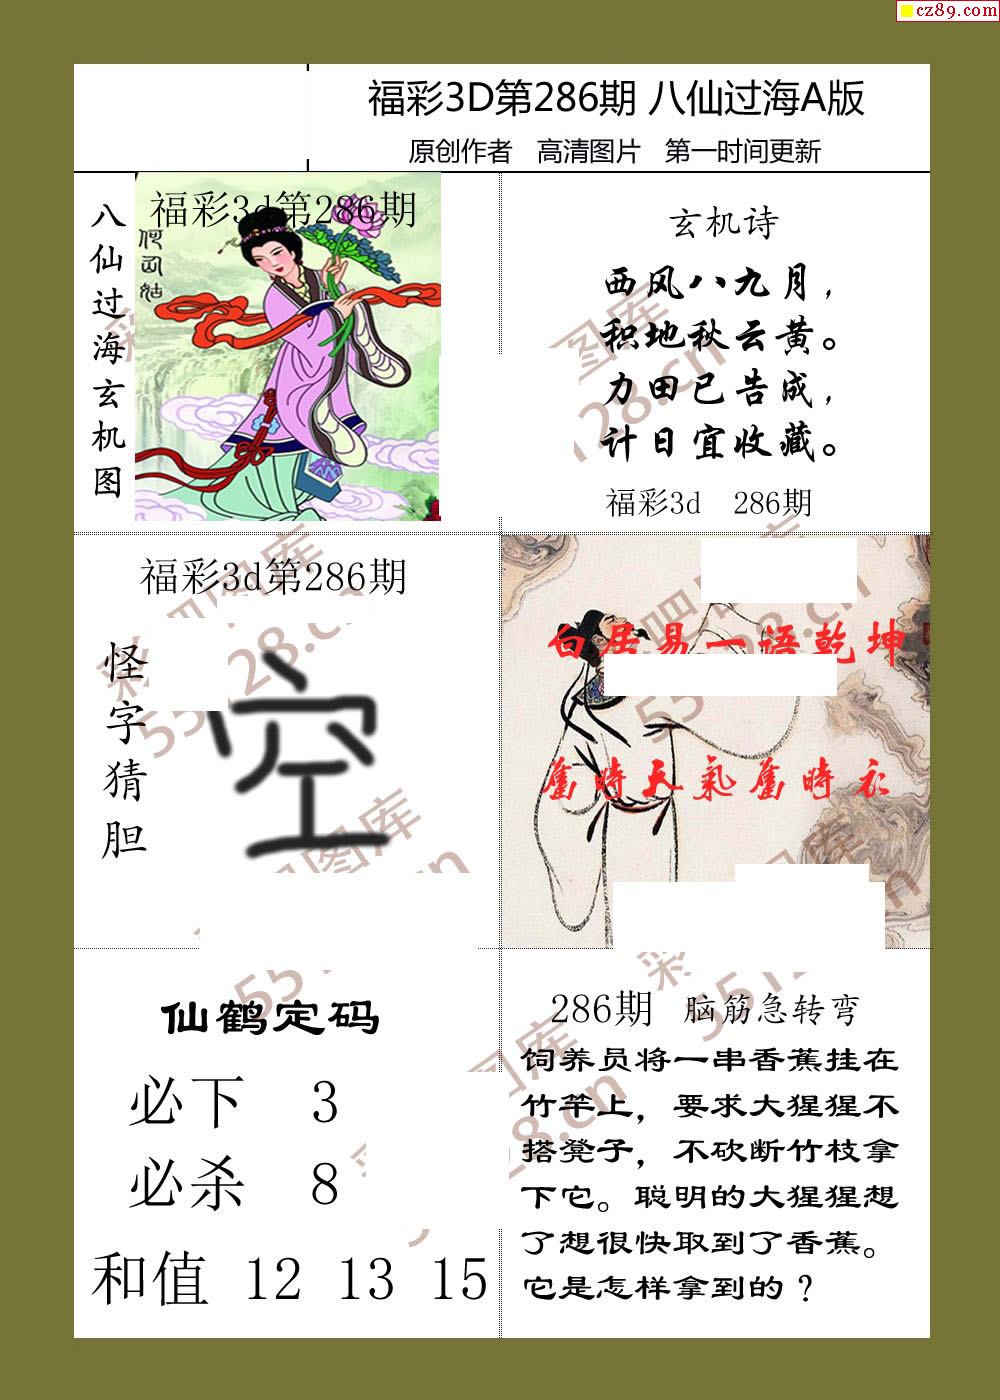 cz89.com
福彩3D第286期 八仙过海A版
原创作者 高清图片 第一时间更新
八仙过海玄机图
福彩3d第286期
何仙姑
玄机诗
西风八九月，
积地秋云黄。
力田已告成，
计日宜收藏。
福彩3d 286期
福彩3d第286期
怪字猜胆
空
白居易一语乾坤
旧时天气旧时衣
仙鹤定码
必下 3
必杀 8
和值 12 13 15
286期 脑筋急转弯
饲养员将一串香蕉挂在
竹竿上，要求大猩猩不
搭凳子，不砍断竹枝拿
下它。聪明的大猩猩想
了想很快取到了香蕉。
它是怎样拿到的？